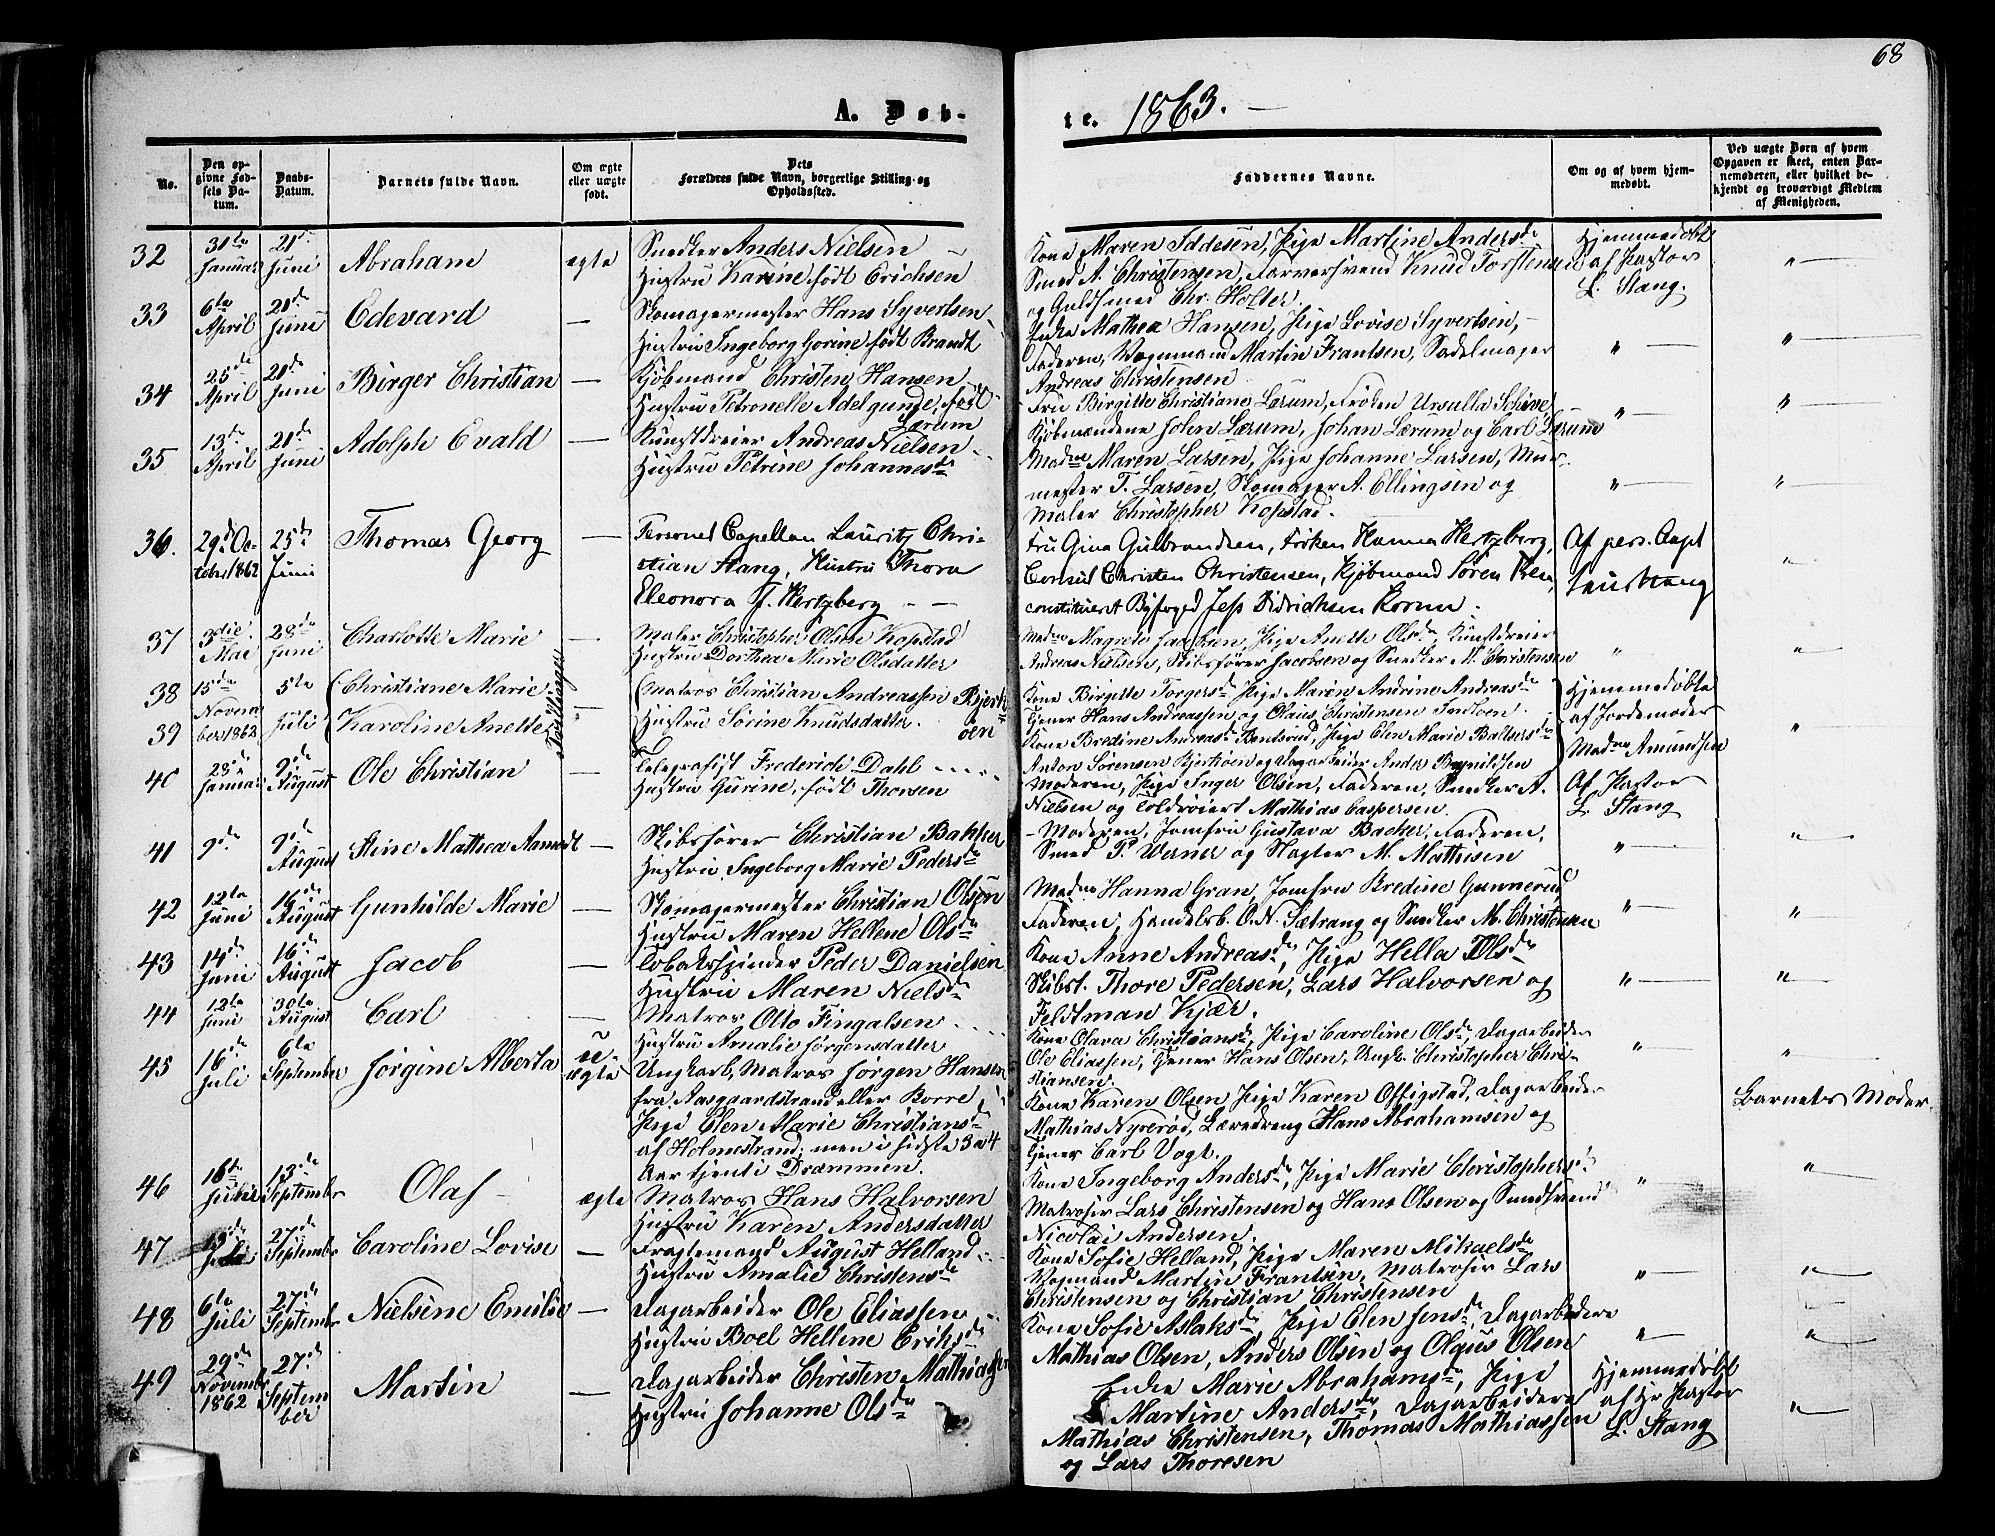 68
A. Døb-
te. 1863.
No.
Den op-
givne Fød-
sels Da-
tum.
Daabs-
Datum.
Barnets fulde Navn.
Om ægte
eller uægte
født.
Dets
Forældres fulde Navn, borgerlige Stilling og
Opholdssted.
Faddernes Navne.
Om og af hvem hjem-
medøbt.
Ved uægte Børn af hvem
Opgaven er skeet, enten Bar-
nemoderen, eller hvilket be-
kjendt og troværdigt Medlem
af Menigheden.
32
31te
Januar
21de
Juni
Abraham
ægte
Snedker Anders Nielsen
Hustru Karine født Erichsen
Kone Maren Iddesen, Pige Martine Andersda
Smed A. Christensen, Farversvend Knud Torstensen
og Guldsmed Chr. Holter.
Hjemmedøbt
af Pastor
L. Stang.
33
6te
April
21de
Juni
Edevard
Skomagermester Hans Syvertsen
Hustru Ingeborg Gorine, født Brandt
Enke Mathea Hansen, Pige Lovise Syvertsen,
Faderen, Vognmand Martin Frantsen, Sadelmager
Andreas Christensen
34
25de
April
21de
Juni
Birger Christian
Kjøbmand Christen Hansen
Hustru Petronelle Adelgunde, født
Lærum
Fru Birgitte Christiane Lærum, Frøken Ursulla Schive,
Kjøbmændene John Lærum, Johan Lærum og Carl Lærum
35
13de
April
21de
Juni
Adolph Evald
Kunstdreier Andreas Nielsen
Hustru Petrine Johannesda
Madme Maren Larsen, Pige Johanne Larsen, Mur-
mester T. Larsen, Skomager A. Ellingsen og
Maler Christopher Kopstad.
36.
29de Oc-
tober 1862
25de
Juni
Thomas Georg
Personel Capellan Lauritz Chri-
stian Stang, Hustru Thora
Eleonora f. Hertzberg
Fru Gina Gulbrandsen, Frøken Hanna Hertzberg,
Consul Christen Christensen, Kjøbmand Søren
constitueret Byfoged Jess Didrichsen
Af pers. Capl
Stang
37
3die
Mai
28de
Juni
Charlotte Marie
Maler Christopher Olsen Kopstad
Hustru Dorthea Marie Olsdatter
Madme Magrete Jacobsen, Pige Anette Olsda, Kunstdreier
Andreas Nielsen, Skibsfører Jacobsen og Snedker M. Christensen
38
39
15de
Novem-
ber 1862
5te
Juli
Christiane Marie
Karoline Anette
Tvillinger
Matros Christian Andreassen Bjerk-
Hustru Sørine Knudsdatter. øen
Kone Birgitte Torgersda Pige Maren Andrine Andreasda
Tjener Hans Andreassen og Olaus Christensen
Kone Bredine Andreasda Bentsrud, Pige Elen Marie Baltsersda
Anton Sørensen Bjerkøen og Dagarbeider Ander
Hjemmedøbte
af Jordemoder
Madme Amundsen
40
23de
Januar
9de
August
Ole Christian
Telegrafist Frederich Dahl
Hustru Gurine, født Thorsen
Moderen, Pige Inger Olsen, Faderen, Snedker A.
Nielsen og Toldroiert Mathias Caspersen.
Af Pastor
L. Stang
41
9de
9de
August
Stine Mathea
Skibsfører Christian Bakker
Hustru Ingeborg Marie Pedersda
Moderen, Jomfru Gustava Backer, Faderen,
Smed P. Werner og Slagter M. Mathisen
42
12te
Juni
16de
August
Gunhilde Marie
Skomagermester Christian Olsen
Hustru Maren Hellene Olsda
Madme Hanna Gran, Jomfru Bredine Gunnerud,
Faderen, Handelsb. O. N. Sætrang og Snedker M. Christensen
43
14de
Juni
16de
August
Jacob
Tobakspinder Peder Danielsen
Hustru Maren Nielsda
Kone Anne Andreasda, Pige Hella Olsda
Skibst. Thore Pedersen, Lars Halvorsen og
Feldtman Kjær.
44
12te
Juni
30te
August
Carl
Matros Otto Fingalsen
Hustru Amalie Jørgensdatter
Kone Olava Christiansda, Pige Caroline Olsda, Dagarbeider
Ole Eliassen, Tjener Hans Olsen, Ungk. Christopher Chri-
stiansen.
45
16de
Juli
6te
September
Jørgine Alberta
u-
ægte
Ungkarl, Matros Jørgen Hansen
fra Aasgaardstrand eller Borre
Pige Elen Marie Christiansda
af Holmestrand, men i sidste 3 a 4
Aar tjent i Drammen.
Kone Karen Olsen Pige Karen Offigstad, Dagarbeider
Mathias Nyrerød, Læredreng Hans Abrahamsen og
Tjener Carl Vogt.
Barnets Moder.
46
16de
Juli
13de
September
Olaf
ægte
Matros Hans Halvorsen
Hustru Karen Andersdatter
Kone Ingeborg Andersda, Pige Marie Christophersda
Matroser Lars Christensen og Hans Olsen og Smedsvend
Nicolai Andersen.
47
Juli
27de
September
Caroline Lovise
Fragtemand August Helland
Hustru Amalie Christensda
Kone Sofie Helland, Pige Maren Mikaelsda
Vognmand Martin Frantsen, Matroser Lars
Christensen og Christian Christensen
48
6te
Juli
27de
September
Nielsine Emilie
Dagarbeider Ole Eliassen
Hustru Boel Hellene Eriksda
Kone Sofie Aslaksda Pige Elen Jensda, Dagarbeidere
Mathias Olsen, Anders Olsen og Olaus Olsen
49
29de
November
1862
27de
Septem-
ber
Martin
Dagarbeider Christen Mathiassen
Hustru Johanne Olsda
Enke Marie Abrahamsda, Pige
Martine Andersda, Dagarbeidere
Mathias Christensen, Thomas Mathiassen
og Lars Thoresen
Hjemmedøbt
af Hr Pastor
L. Stang